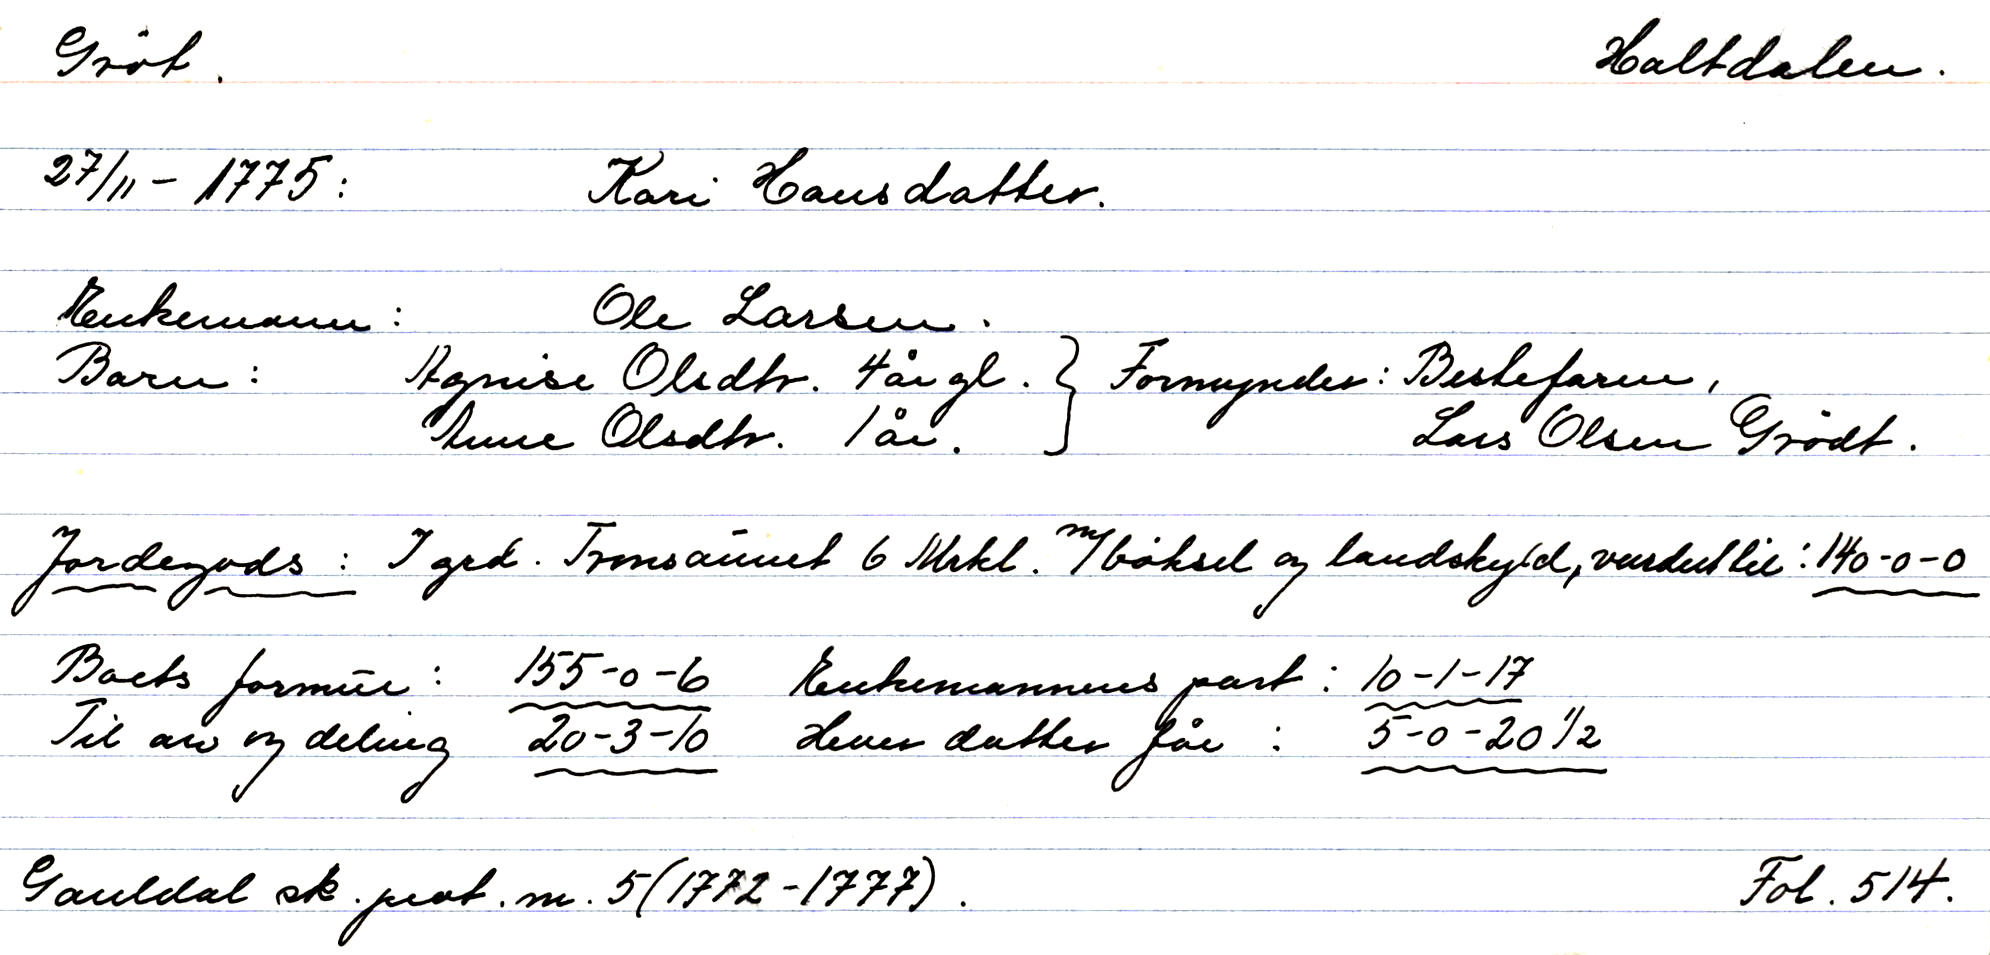 Gröt. Haltdalen.
27/11 - 1775: Kari Hansdatter.
Enkemann: Ole Larsen.
Barn: Agnise Olsdtr. 4 år gl. } Formynder: Bestefaren,
Anne Olsdtr. 1 år. Lars Olsen Grödt.
Jordegods: I grd. Tronsaunet 6 Mrkl. m/böksel og landskyld, vurdert til: 140-0-0
Boets formue: 155-0-6 Enkemannens part: 10-1-17
Til arv og deling 20-3-10 Hver datter får: 5-0-20 1/2
Gauldal sk. prot. nr. 5 (1772-1777). Fol. 514.